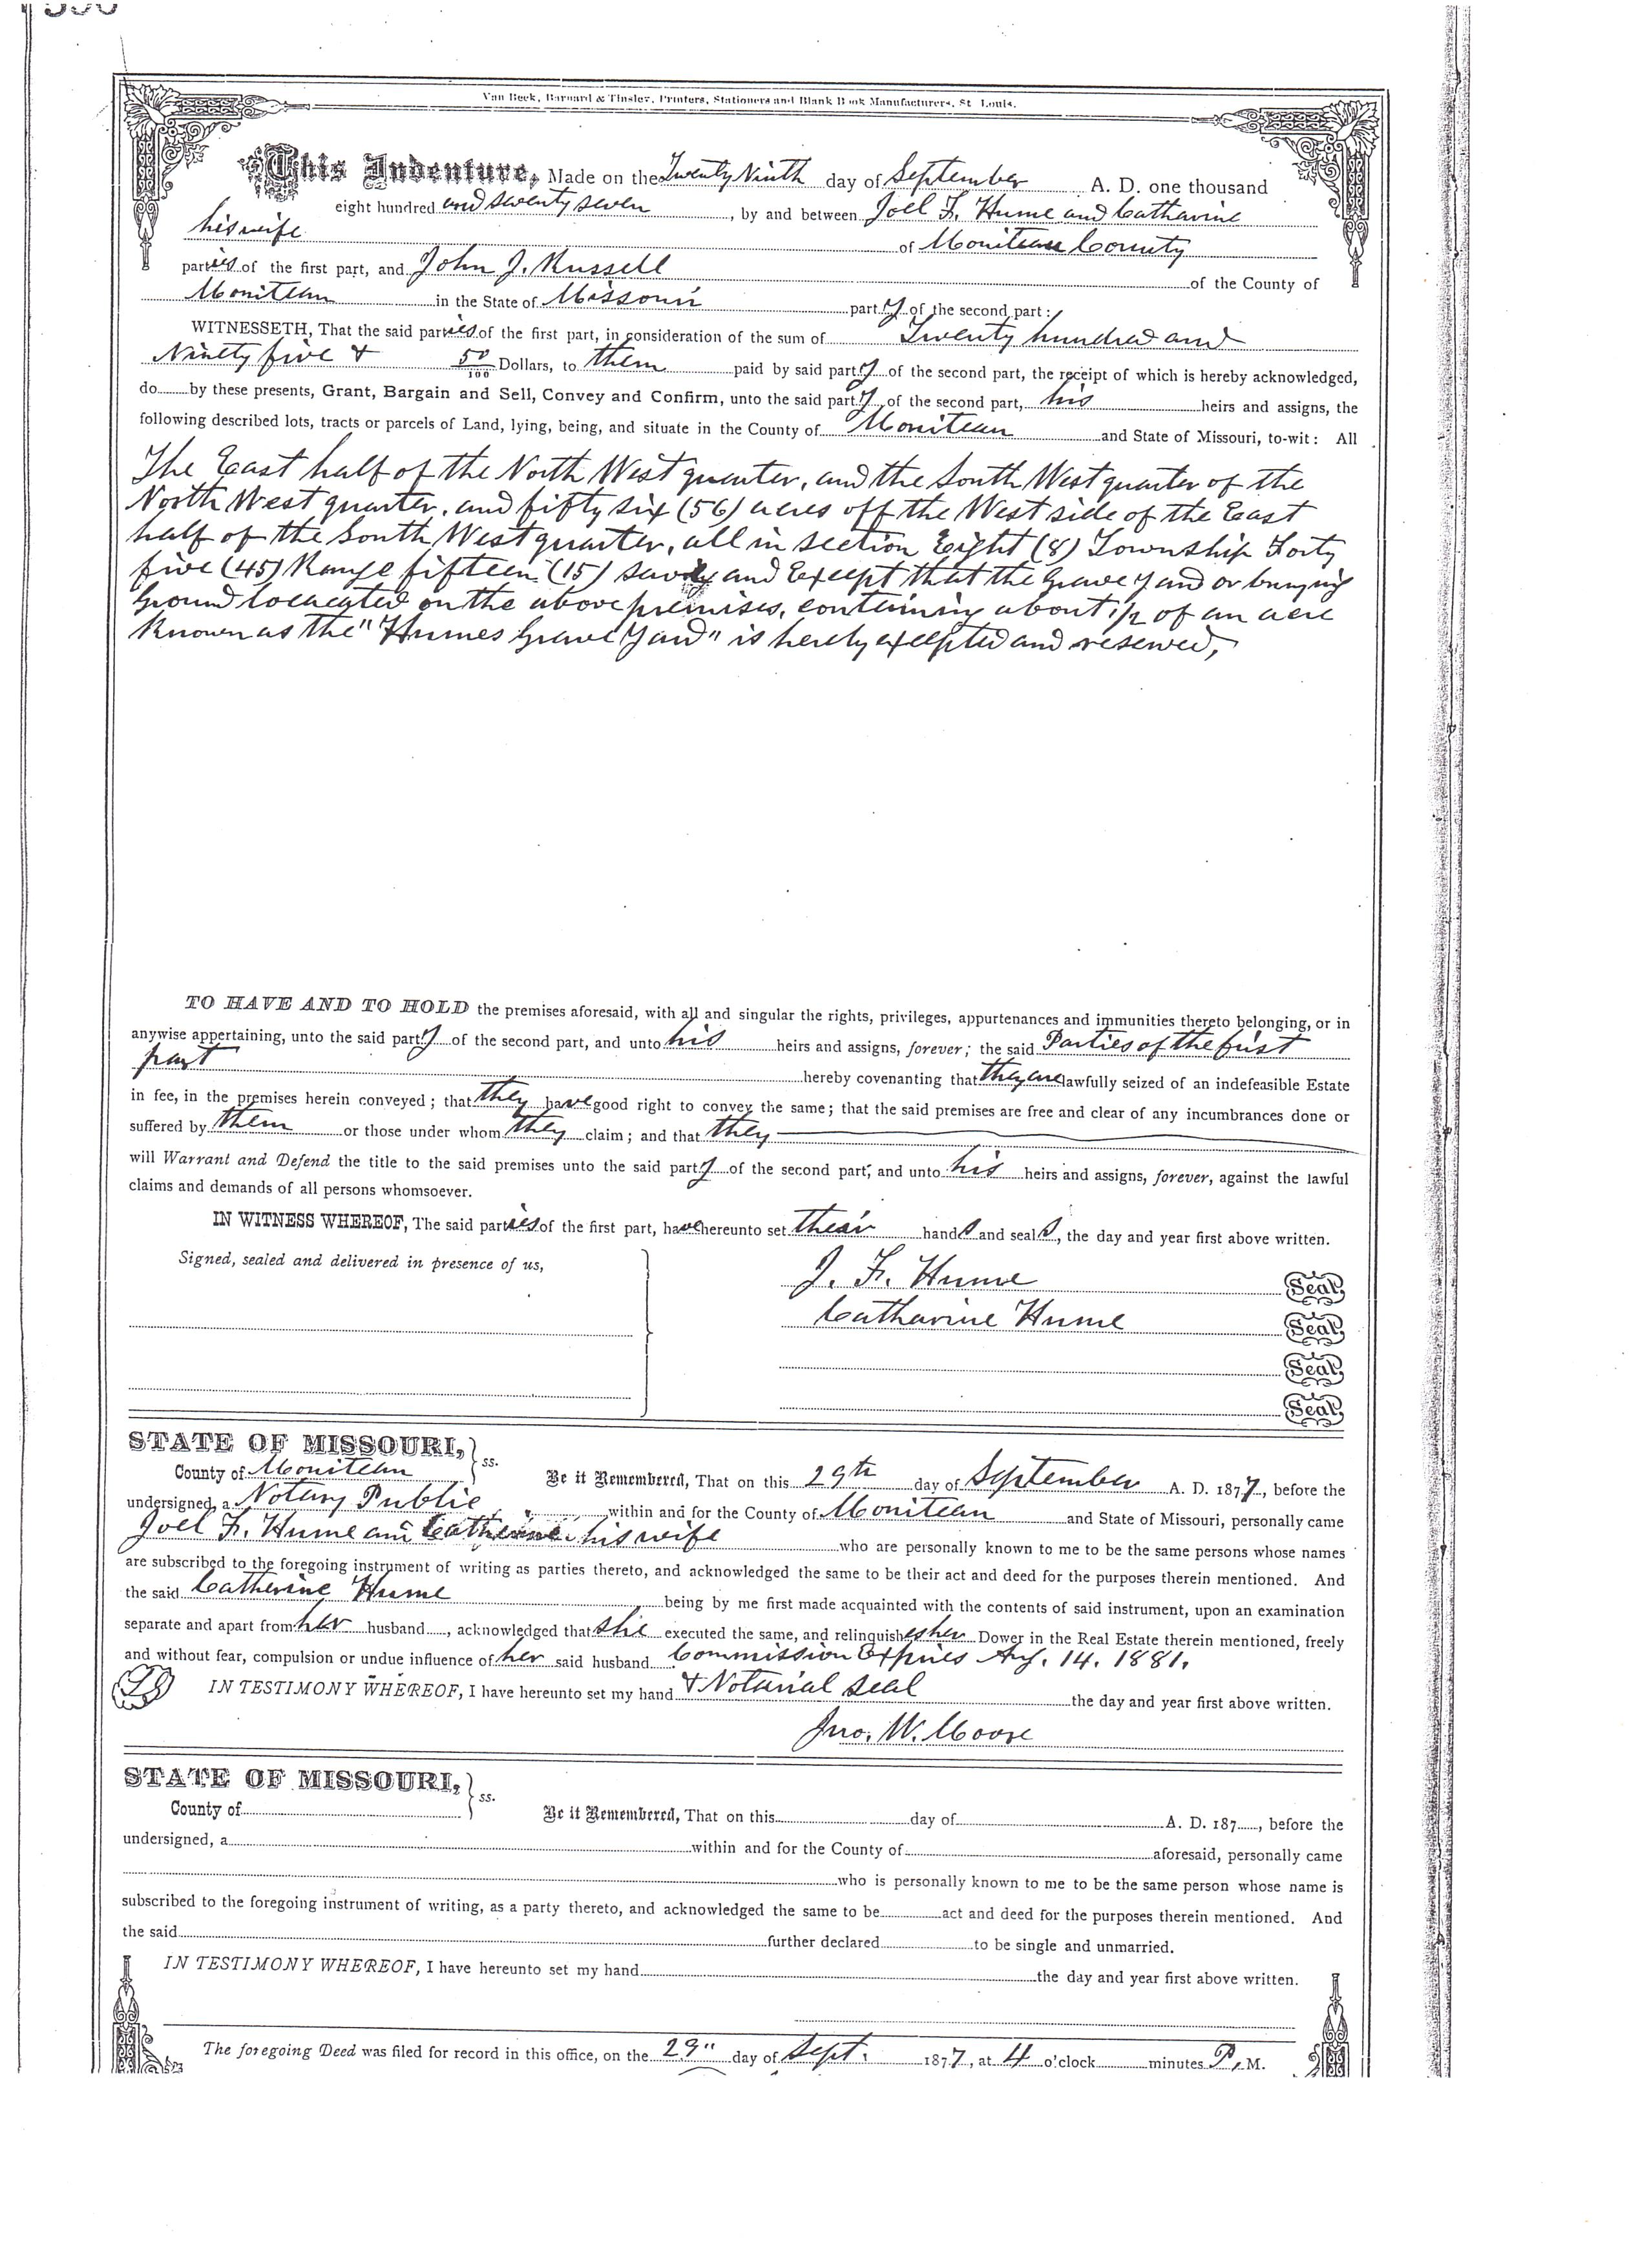 Van Beek, Barnard & Tinsley, Printers, Stationers and Blank Book Manufacturers, St. Louis.
This Indenture, Made on the Twenty Ninth day of September A. D. one thousand
eight hundred and seventy seven, by and between Joel F. Hume and Catharine
his wife of Moniteau County
parties of the first part, and John J. Russell of the County of
Moniteau in the State of Missouri party of the second part:
WITNESSETH, That the said parties of the first part, in consideration of the sum of Twenty hundred and
Ninety five & 50/100 Dollars, to them paid by said party of the second part, the receipt of which is hereby acknowledged,
do by these presents, Grant, Bargain and Sell, Convey and Confirm, unto the said party of the second part, his heirs and assigns, the
following described lots, tracts or parcels of Land, lying, being, and situate in the County of Moniteau and State of Missouri, to-wit: All
The East half of the North West quarter, and the South West quarter of the
North West quarter, and fifty six (56) acres off the West side of the East
half of the South West quarter, all in section Eight (8) Township Forty
five (45) Range fifteen (15) and Except that the Grave Yard or burying
Ground locacated on the above premises, containing about 1/2 of an acre
Known as the "Humes Grave Yard" is hereby excepted and reserved,
TO HAVE AND TO HOLD the premises aforesaid, with all and singular the rights, privileges, appurtenances and immunities thereto belonging, or in
anywise appertaining, unto the said party of the second part, and unto his heirs and assigns, forever; the said Parties of the first
part hereby covenanting that they are lawfully seized of an indefeasible Estate
in fee, in the premises herein conveyed; that they have good right to convey the same; that the said premises are free and clear of any incumbrances done or
suffered by them or those under whom they claim; and that they
will Warrant and Defend the title to the said premises unto the said party of the second part, and unto his heirs and assigns, forever, against the lawful
claims and demands of all persons whomsoever.
IN WITNESS WHEREOF, The said parties of the first part, have hereunto set their hands and seals, the day and year first above written.
Signed, sealed and delivered in presence of us,
J. F. Hume Seal,
Catharine Hume Seal,
Seal,
Seal,
STATE OF MISSOURI, } ss.
County of Moniteau Be it Remembered, That on this 29th day of September A. D. 1877, before the
undersigned, a Notary Public within and for the County of Moniteau and State of Missouri, personally came
Joel F. Hume and Catherine his wife who are personally known to me to be the same persons whose names
are subscribed to the foregoing instrument of writing as parties thereto, and acknowledged the same to be their act and deed for the purposes therein mentioned. And
the said Catherine Hume being by me first made acquainted with the contents of said instrument, upon an examination
separate and apart from her husband, acknowledged that she executed the same, and relinquishes her Dower in the Real Estate therein mentioned, freely
and without fear, compulsion or undue influence of her said husband. Commission Expires Aug. 14. 1881.
LS IN TESTIMONY WHEREOF, I have hereunto set my hand & Notarial seal the day and year first above written.
Jno. W. Moore
STATE OF MISSOURI, } ss.
County of Be it Remembered, That on this day of A. D. 187, before the
undersigned, a within and for the County of aforesaid, personally came
who is personally known to me to be the same person whose name is
subscribed to the foregoing instrument of writing, as a party thereto, and acknowledged the same to be act and deed for the purposes therein mentioned. And
the said further declared to be single and unmarried.
IN TESTIMONY WHEREOF, I have hereunto set my hand the day and year first above written.
The foregoing Deed was filed for record in this office, on the 29" day of Sept. 1877, at 4 o'clock minutes P. M.